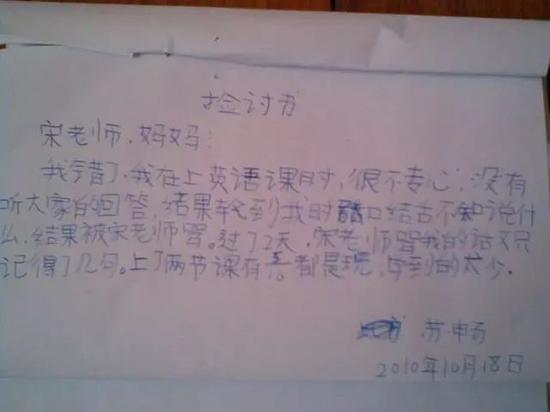 检讨书
宋老师,妈妈:
我错了,我在上英语课时,很不专心,没有
听大家的回答,结果轮到我时口结舌不知说什
么,结果被宋老师骂。过了2天,宋老师骂我的话又只
记得了几句。上了两节课有都是玩,学到的太少。
苏畅
2010年10月18日